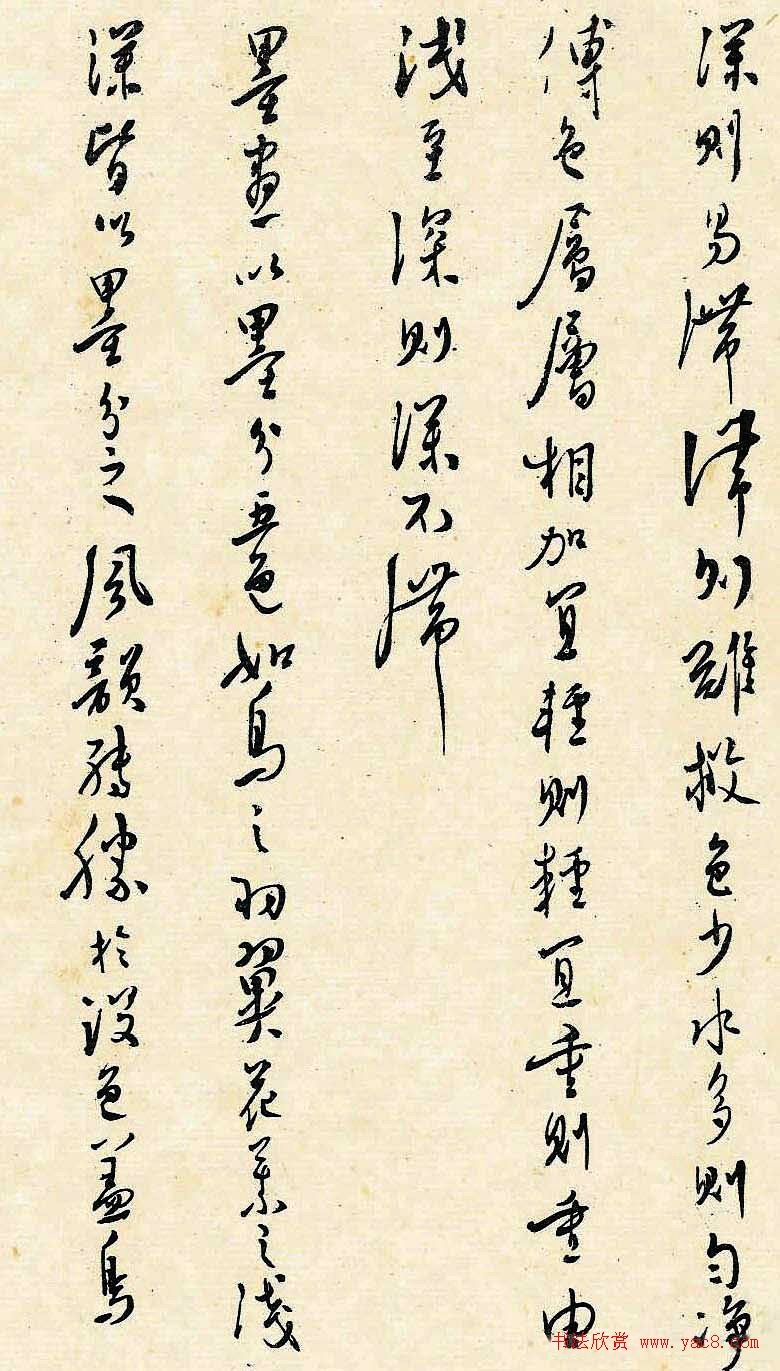 深則易滯滯則難救色少水多則勻淨
傅色層層相加宜輕則輕宜重則重由
淺至深則深不滯
墨畫以墨分五色如鳥之羽翼花葉之淺
深皆以墨分之風韻轉勝於設色蓋鳥
书法欣赏 www.yac8.com